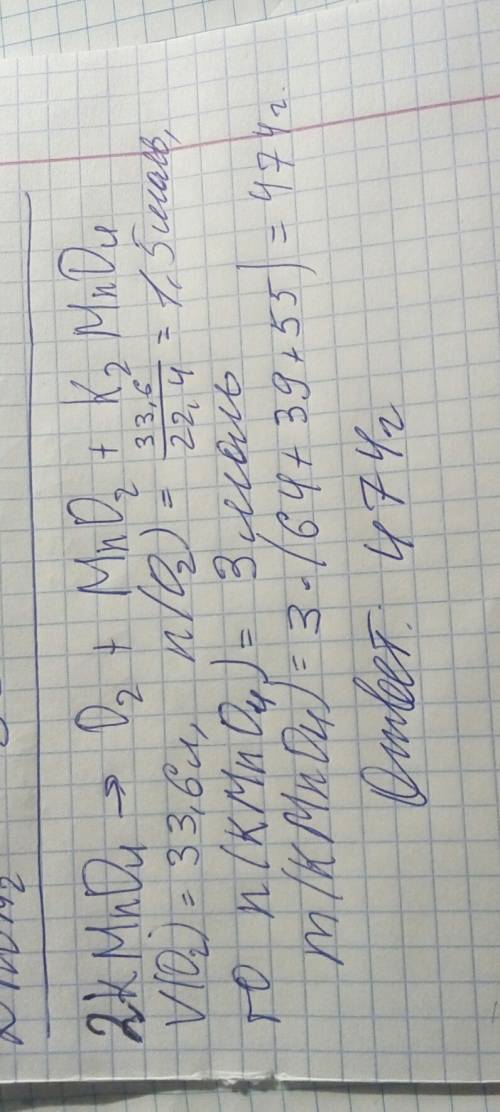 2KMnO₄ → O₂ + MnO₂ + K₂MnO₄
V(O₂) = 33,6л, n(O₂) = 33,6/22,4 = 1,5моль,
то n(KMnO₄) = 3 моль
m(KMnO₄) = 3·(64+39+55) = 474г.
Ответ: 474г